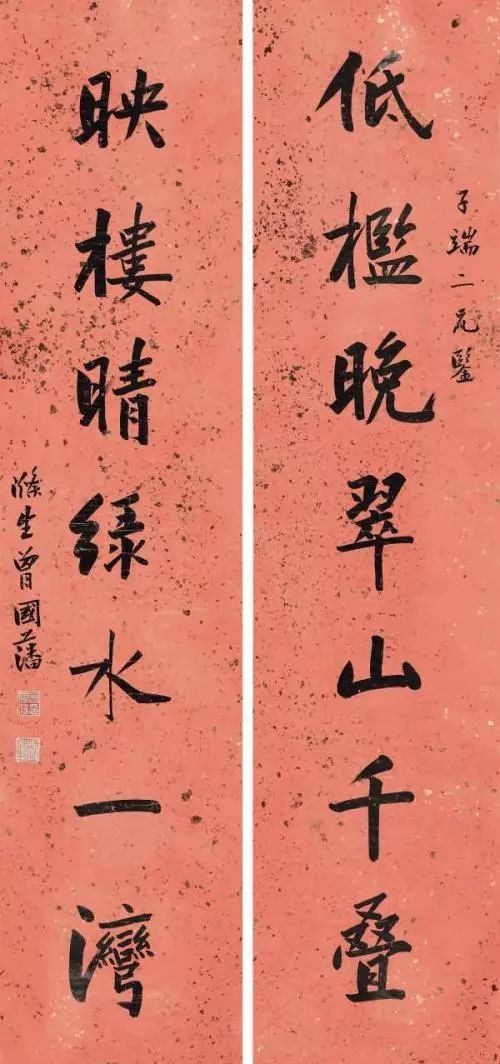 低檻晚翠山千叠
子端二兄鑒
映樓晴綠水一灣
滌生曾國藩